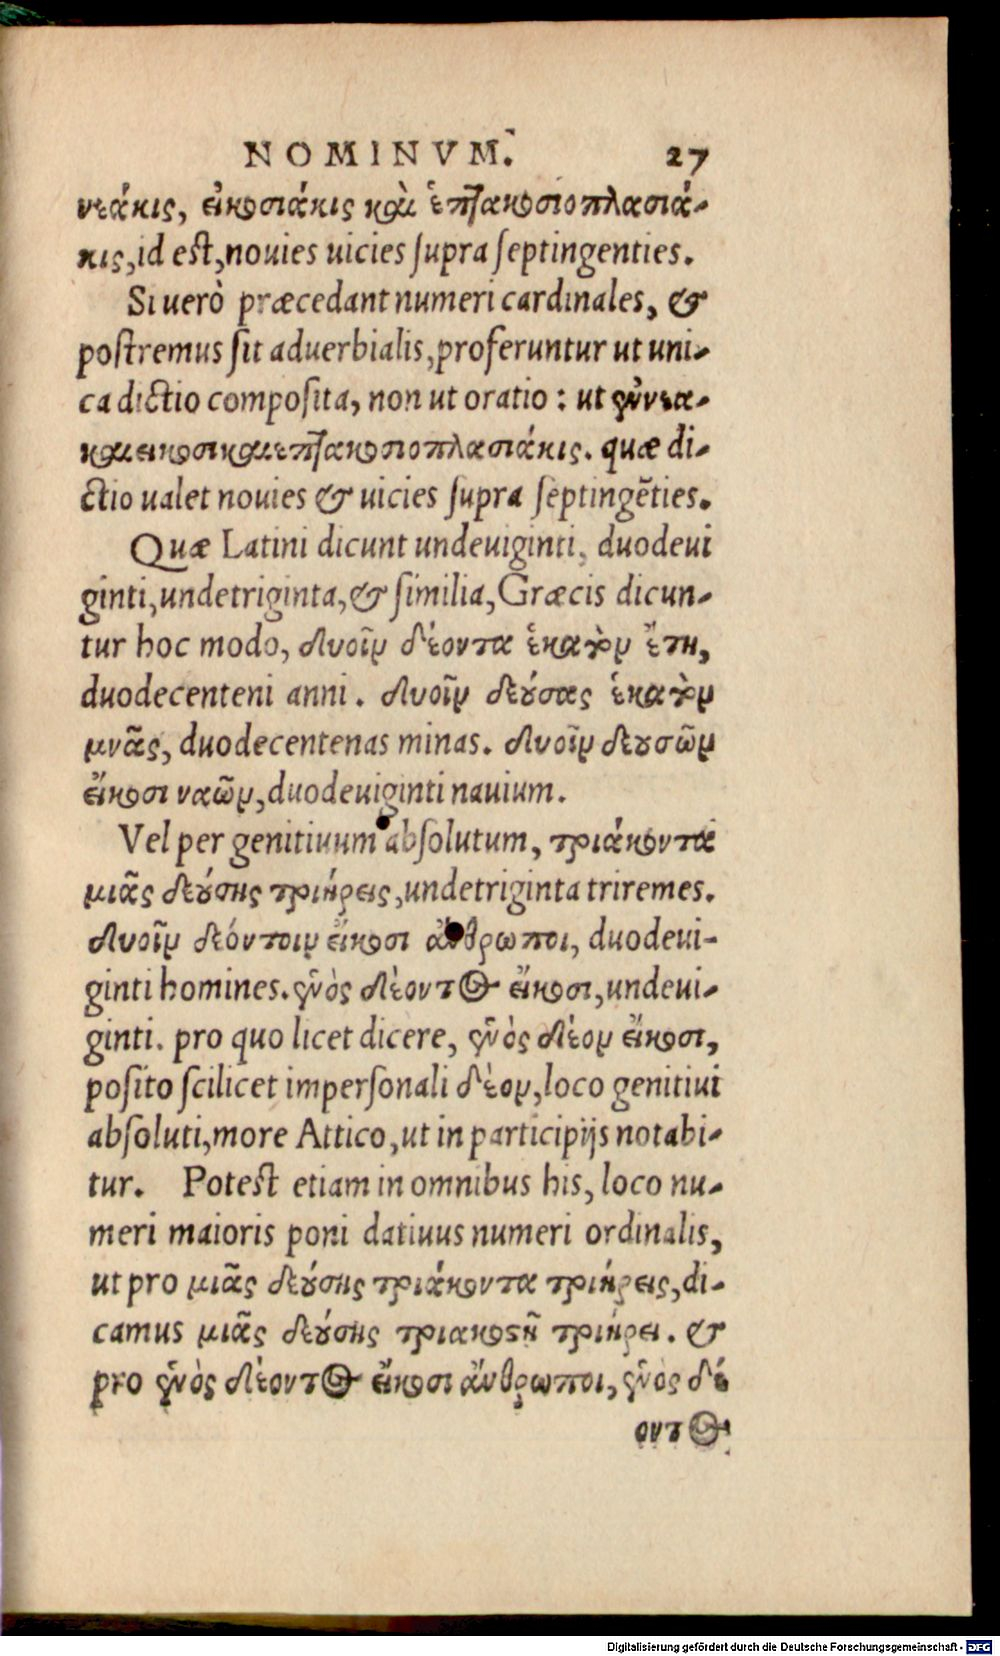 NOMINVM. 27
νεάκις, εἰκοσιάκις καὶ ἑπτακοσιοπλασιά-
κις, id est, nouies uicies supra septingenties.
Si uerò præcedant numeri cardinales, &
postremus sit aduerbialis, proferuntur ut uni-
ca dictio composita, non ut oratio: ut ἐννεα-
καιεικοσικαιεπτακοσιοπλασιάκις. quæ di-
ctio ualet nouies & uicies supra septingẽties.
Quæ Latini dicunt undeuiginti, duodeui
ginti, undetriginta, & similia, Græcis dicun-
tur hoc modo, δυοῖν δέοντα ἑκατὸν ἔτη,
duodecenteni anni. δυοῖν δεύσας ἑκατὸν
μνᾶς, duodecentenas minas. δυοῖν δευσῶν
εἴκοσι ναῶν, duodeuiginti nauium.
Vel per genitiuum absolutum, τριάκοντα
μιᾶς δεύσης τριήρεις, undetriginta triremes.
δυοῖν δεόντοιν εἴκοσι ἄνθρωποι, duodeui-
ginti homines. ἑνὸς δέοντος εἴκοσι, undeui-
ginti. pro quo licet dicere, ἑνὸς δέον εἴκοσι,
posito scilicet impersonali δέον, loco genitiui
absoluti, more Attico, ut in participijs notabi-
tur. Potest etiam in omnibus his, loco nu-
meri maioris poni datiuus numeri ordinalis,
ut pro μιᾶς δεύσης τριάκοντα τριήρεις, di-
camus μιᾶς δεύσης τριακοστῇ τριήρει. &
pro ἑνὸς δέοντος εἴκοσι ἄνθρωποι, ἑνὸς δέ
οντος
Digitalisierung gefördert durch die Deutsche Forschungsgemeinschaft - DFG